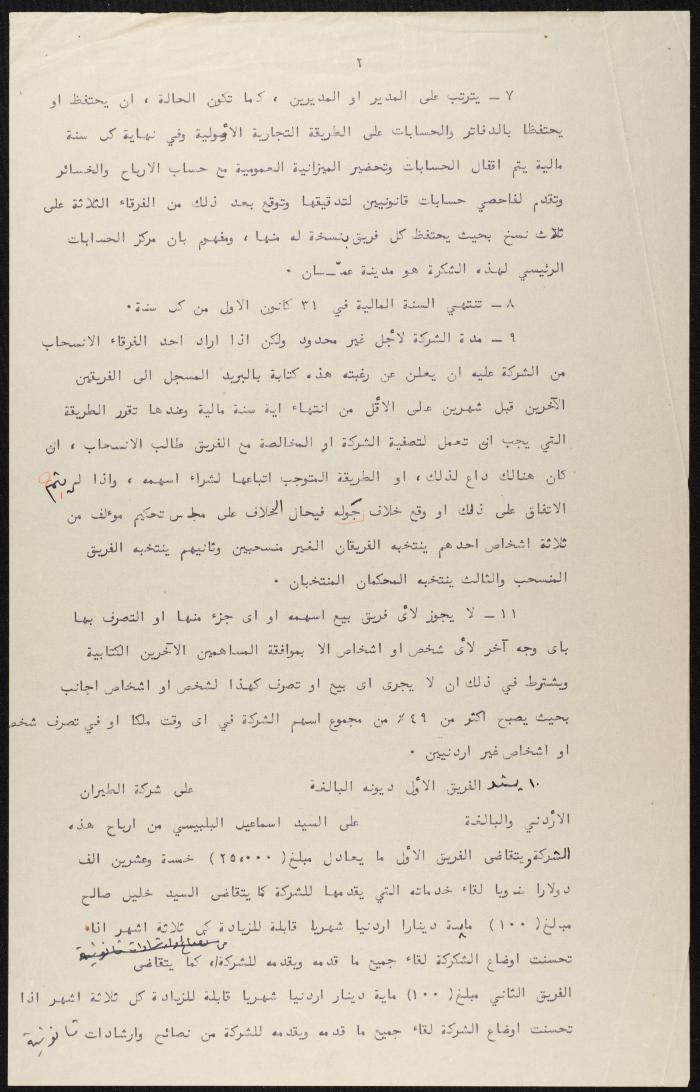 ٢
٧ ـ يترتب على المدير او المديرين ، كما تكون الحالة ، ان يحتفظ او
يحتفظا بالدفاتر والحسابات على الطريقة التجارية الأصولية وفي نهاية كل سنة
مالية يتم اقفال الحسابات وتحضير الميزانية العمومية مع حساب الارباح والخسائر
وتقدم لفاحصي حسابات قانونيين لتدقيقها وتوقع بعد ذلك من الفرقاء الثلاثة على
ثلاث نسخ بحيث يحتفظ كل فريق بنسخة له منها ، ومفهوم بان مركز الحسابات
الرئيسي لهذه الشكرة هو مدينة عمّـــان ٠
٨ ـ تنتهي السنة المالية في ٣١ كانون الاول من كل سنة ٠
٩ ـ مدة الشركة لأجل غير محدود ولكن اذا اراد احد الفرقاء الانسحاب
من الشركة عليه ان يعلن عن رغبته هذه كتابة بالبريد المسجل الى الفريقين
الآخرين قبل شهرين على الأقل من انتهاء اية سنة مالية وعندها تقرر الطريقة
التي يجب ان تعمل لتصفية الشركة او المخالصة مع الفريق طالب الانسحاب ، ان
كان هنالك داع لذلك ، او الطريقة المتوجب اتباعها لشراء اسهمه ، واذا لم يتم
الاتفاق على ذلك او وقع خلاف حوله فيحال الخلاف على مجلس تحكيم موءلف من
ثلاثة اشخاص احدهم ينتخبه الفريقان الغير منسحبين وثانيهم ينتخبه الفريق
المنسحب والثالث ينتخبه المحكمان المنتخبان ٠
١١ ـ لا يجوز لأى فريق بيع اسهمه او اى جزء منها او التصرف بها
باى وجه آخر لأى شخص او اشخاص الا بموافقة المساهمين الآخرين الكتابية
ويشترط في ذلك ان لا يجرى اى بيع او تصرف كهذا لشخص او اشخاص اجانب
بحيث يصبح اكثر من ٤٩٪ من مجموع اسهم الشركة في اى وقت ملكا او في تصرف شخص
او اشخاص غير اردنيين ٠
١٠ الفريق الأول ديونه البالغة على شركة الطيران
الأردني والبالغة على السيد اسماعيل البلبيسي من ارباح هذه
الشركة ويتقاضى الفريق الأول ما يعادل مبلغ ( ٢٥،٠٠٠ ) خمسة وعشرين الف
دولارا سنويا لقاء خدماته التي يقدمها للشركة كما يتقاضى السيد خليل صالح
مبلغ ( ١٠٠ ) ماية دينارا اردنيا شهريا قابلة للزيادة كل ثلاثة اشهر اذا
تحسنت اوضاع الشكركة لقاء جميع ما قدمه ويقدمه للشركة ، كما يتقاضى
الفريق الثاني مبلغ ( ١٠٠ ) ماية دينار اردنيا شهريا قابلة للزيادة كل ثلاثة اشهر اذا
تحسنت اوضاع الشركة لقاء جميع ما قدمه ويقدمه للشركة من نصائح وارشادات قانونية